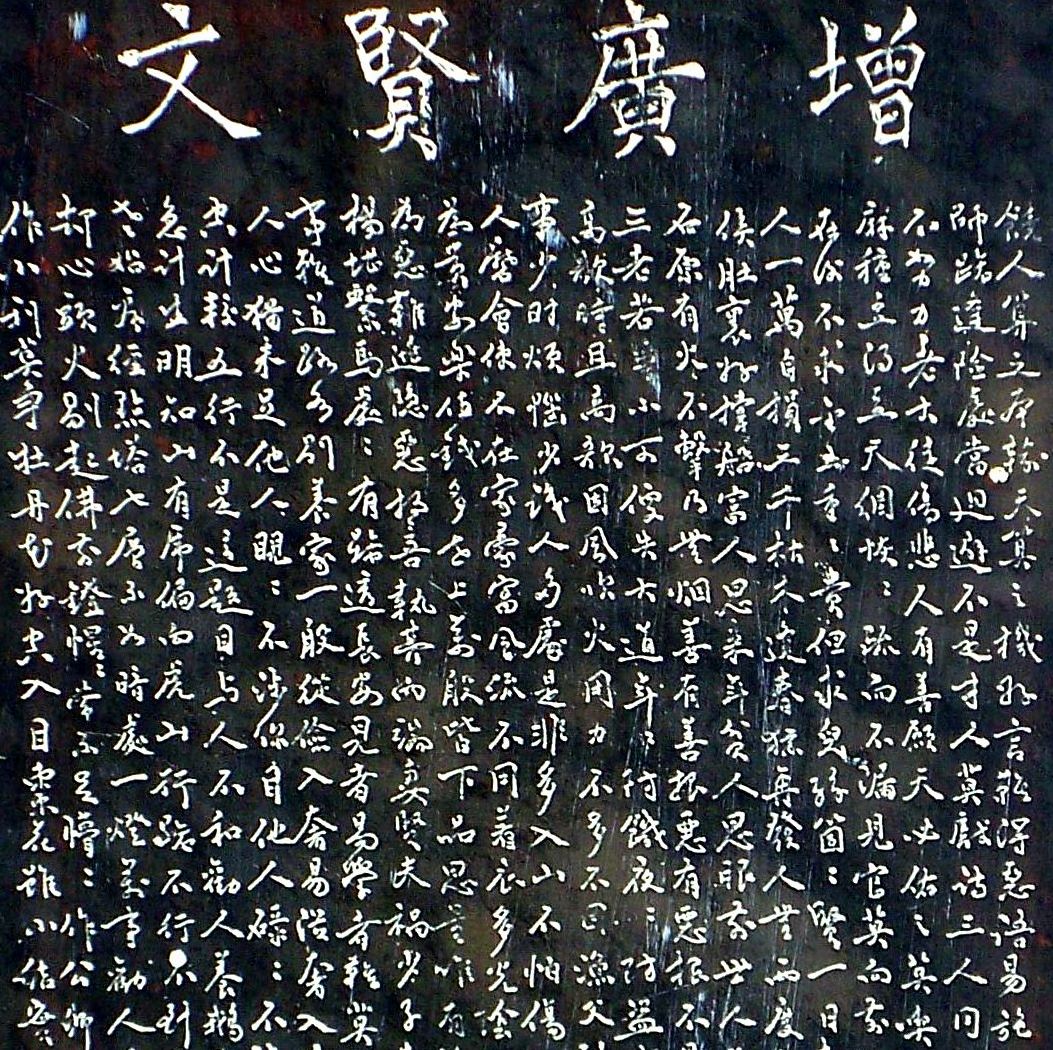 增廣賢文
饒人算之本輸天算之機好言難得惡語易施
師路逢險處當迴避不是才人莫獻詩三人同
不努力老大徒傷悲人有善願天必佑之莫與
麻種豆得豆天網恢〻疏而不漏見官莫向前
在後不求金玉重〻貴但求兒孫箇〻賢一日
人一萬自損三千枯木逢春猶再發人無兩度
侯肚裏好撐船富人思來年貧人思眼前世人
石原有火不擊乃無烟善有善根惡有惡根不
三老若小不便失大道年〻防饑夜〻防盜
高歌時且高歌因風吹火用力不多不因漁父
事少時煩惱少識人多處是非多入山不怕傷
人磨會使不在家豪富風流不同着衣多光陰
為黃安樂值錢多世上萬般皆下品思量唯有
為惡難逃隱惡揚善執其兩端妻賢夫禍少子
楊堪繫馬處〻有路透長安見者易學者難莫
事難道路各別養家一般從儉入奢易從奢入
人心猶未足他人睍〻不涉你自他人碌〻不
密計較五行不是這題目与人不和勸人養鵝
急計生明知山有虎偏向虎山行路不行不到
大姑viewing經點塔七層不如暗處一燈萬事勸人
打心頭火剔起佛前鐙惺〻常不足懵〻作公卿
作小利莫争牡丹花好空入目棗花雖小結實